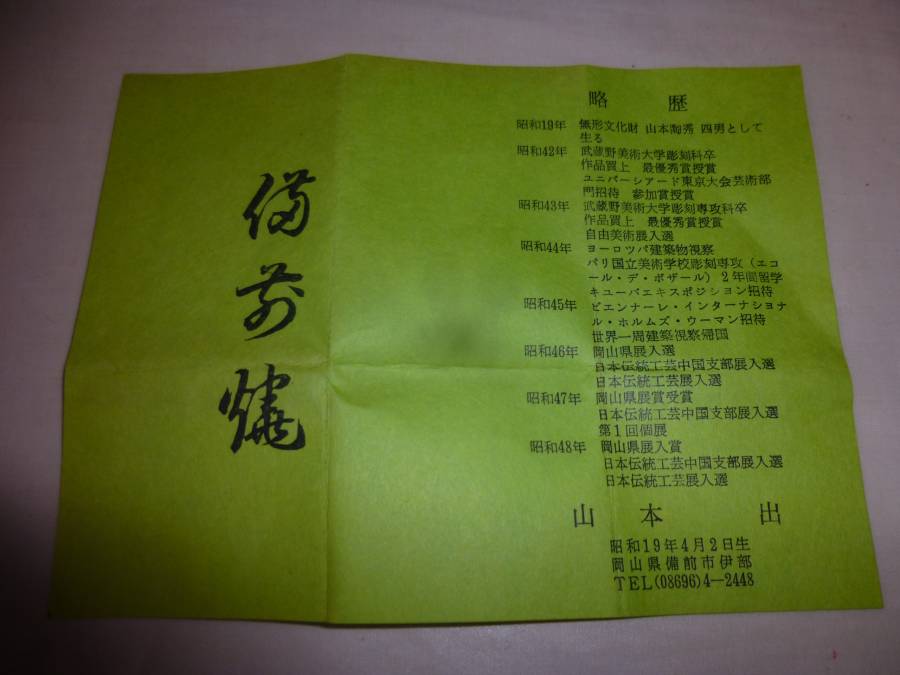 備前燒
略歴
昭和19年 無形文化財 山本陶秀 四男として
生る
昭和42年 武蔵野美術大学彫刻科卒
作品買上 最優秀賞授賞
ユニバーシアード東京大会芸術部
門招待 参加賞授賞
昭和43年 武蔵野美術大学彫刻専攻科卒
作品買上 最優秀賞授賞
自由美術展入選
昭和44年 ヨーロツパ建築物視察
パリ国立美術学校彫刻専攻（エコ
ール・デ・ボザール）2年間留学
キユーバエキスポジション招待
昭和45年 ビエンナーレ・インターナショナ
ル・ホルムズ・ウーマン招待
世界一周建築視察帰国
昭和46年 岡山県展入選
日本伝統工芸中国支部展入選
日本伝統工芸展入選
昭和47年 岡山県展賞受賞
日本伝統工芸中国支部展入選
第1回個展
昭和48年 岡山県展入賞
日本伝統工芸中国支部展入選
日本伝統工芸展入選
山本 出
昭和19年4月2日生
岡山県備前市伊部
TEL(08696)4—2448